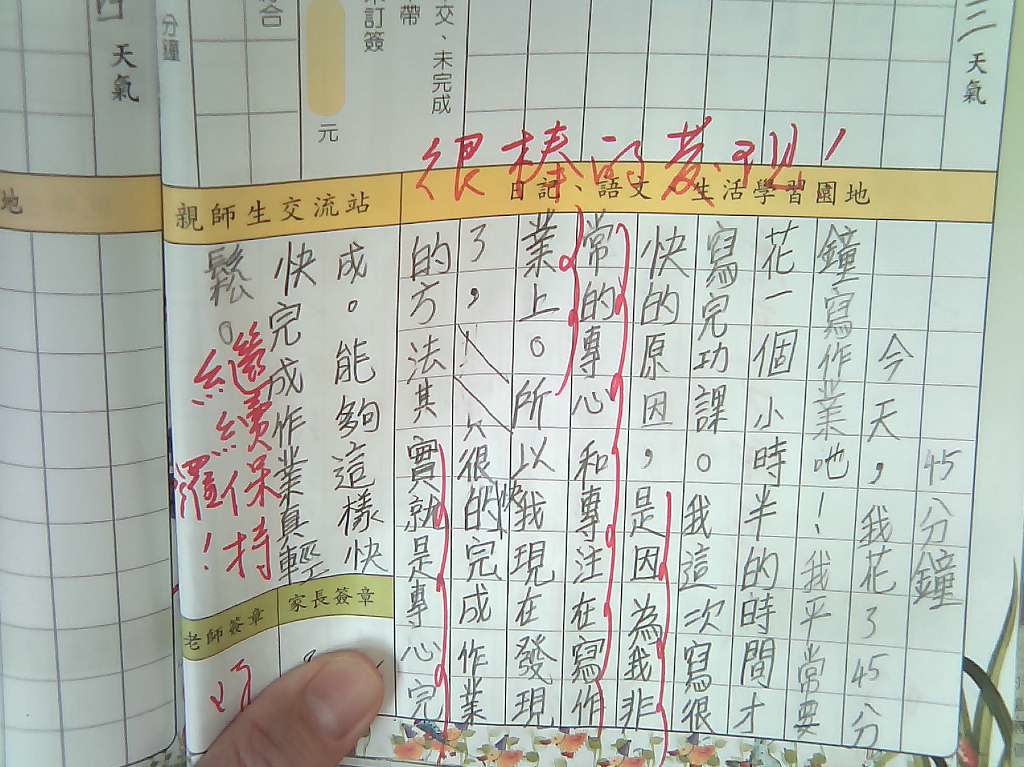 三
天氣
交、未完成
帶
訂簽
元
合
分鐘
四
天氣
地
很棒的發現！
日記、語文、生活學習園地
親師生交流站
45分鐘
今天，我花了45分
鐘寫作業吔！我平常要
花一個小時半的時間才
寫完功課。我這次寫很
快的原因，是因為我非
常的專心和專注在寫作
業上。所以我現在發現
了，很快的完成作業
的方法其實就是專心完
成。能夠這樣快
快完成作業真輕
鬆。
繼續保持
囉！
家長簽章
老師簽章